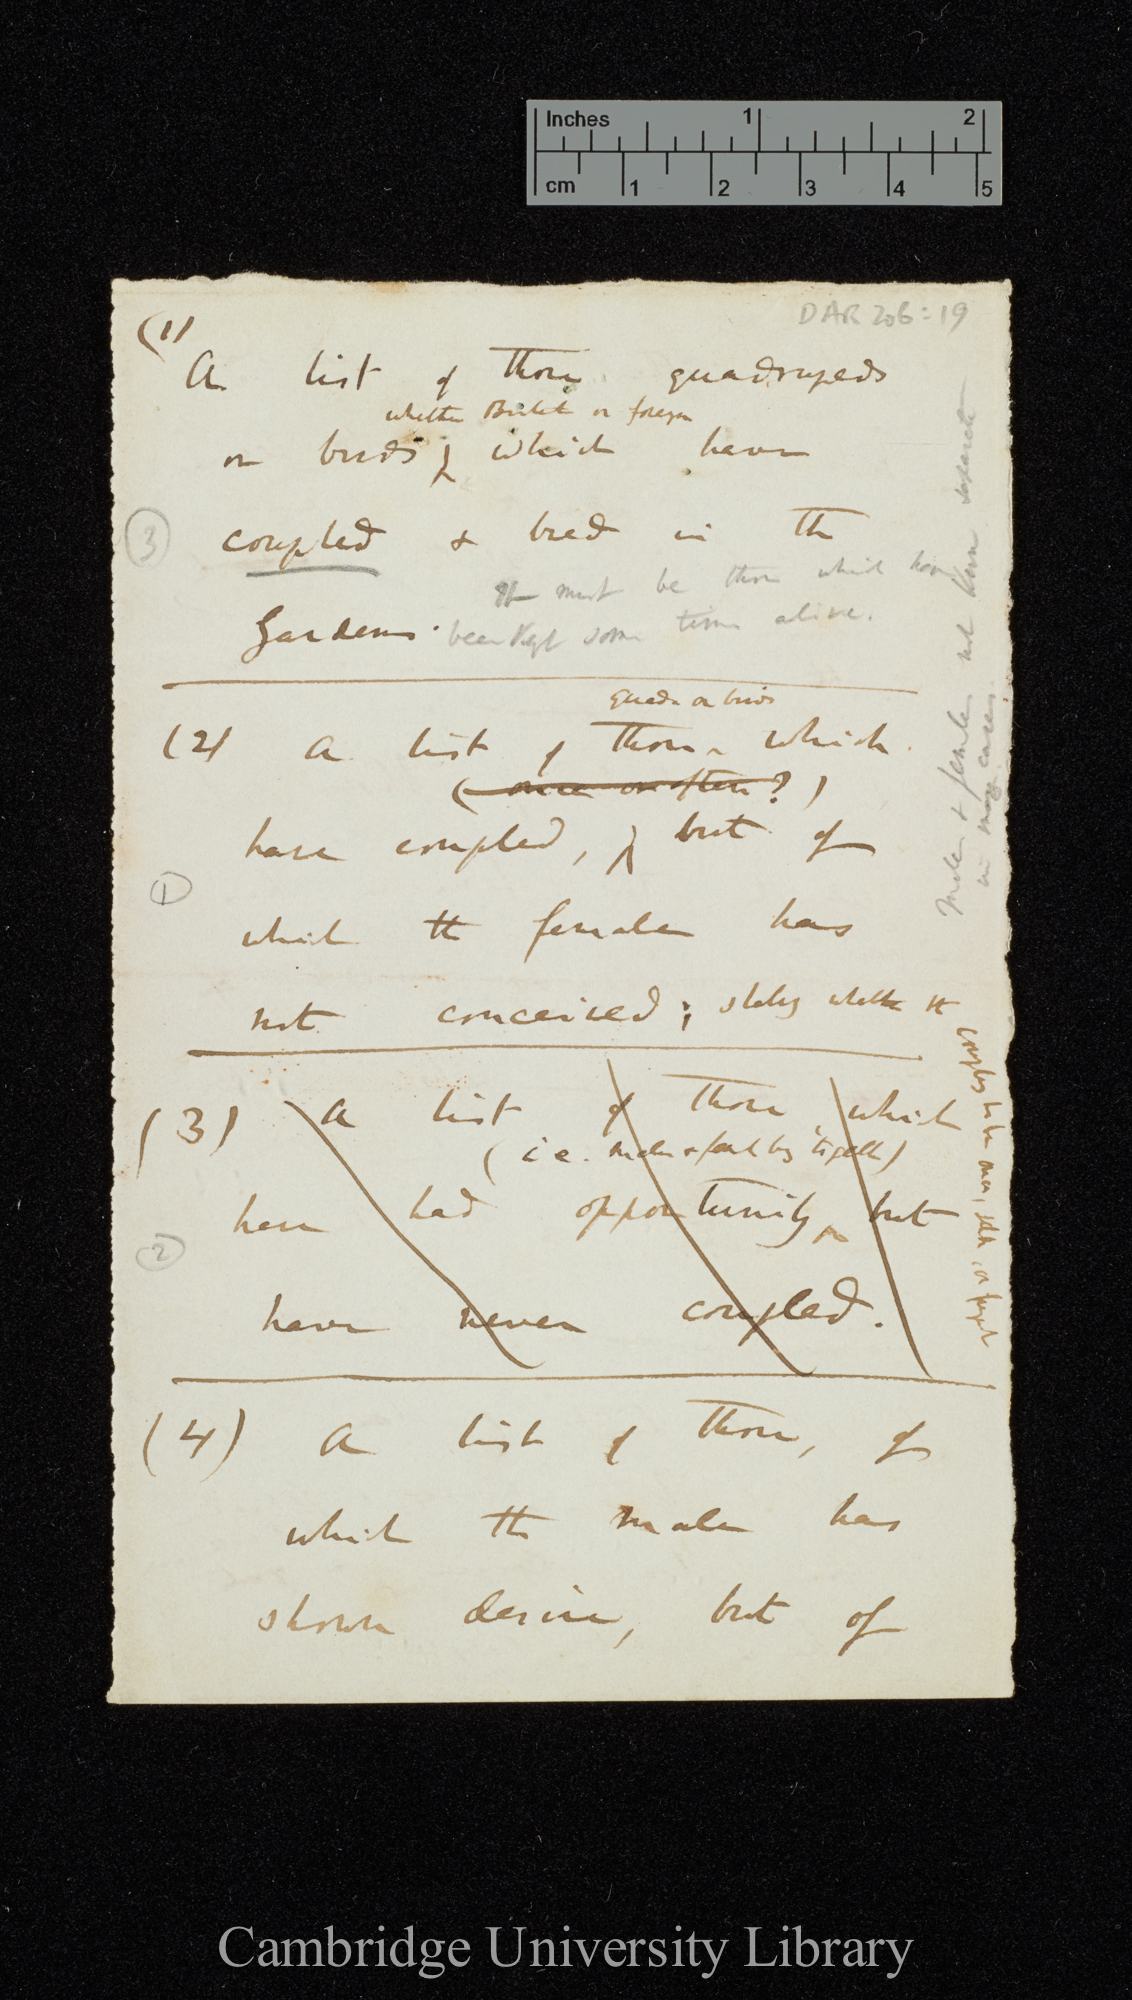 Inches 1 2
cm 1 2 3 4 5
DAR 206:19
(1)
A list of those quadrupeds
whether British or foreign
or birds, which have
③ coupled & bred in the
It must be those which have
Gardens. been kept some time alive.
Males & females not known separate
in many cases.
quads or birds
(2) A list of those which
(once or often?)
have coupled, but of
①
which the female has
not conceived; stating whether the
couples to be once, or
(3) A list of those which
(i.e. males & together)
have had opportunity, but
②
have never coupled.
(4) A list of those, of
which the male has
shown desire, but of
Cambridge University Library